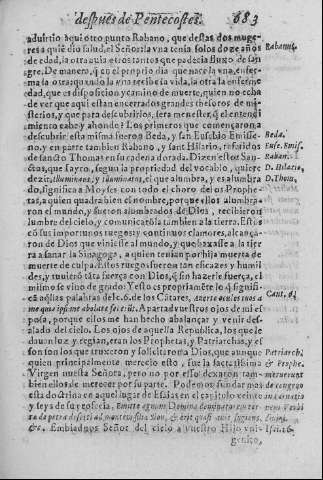 despues de Pentecostes. 683
aduirtio aqui otro punto Rabano, que destas dos muge-
res a quiē dio salud, el Señor: la vna tenia solos doze años
de edad, la otra auia otros tantos que padecia fluxo de san
gre. De manera, q̄ en el proprio dia que nace la vna, enfer-
ma la otra: quando la vna recibe la vida, la otra la enferme
dad, que es disposicion y camino de muerte, quien no echa
de ver que aqui estan encerrados grandes thesoros de mi-
sterios, y que para descubrirlos, sera menester, q̄ el entendi
miento cabe y ahonde? Los primeros que començaron a
descubrir esta mina fueron Beda, y san Eusebio Emisse-
no, y en parte tambien Rabano, y sant Hilario, referidos
de sancto Thomas en su cadena dorada. Dizen estos San-
ctos, que Iayro, segun la propriedad del vocablo, quiere
dezir, illuminans, y illuminatus, el que alumbra, y es alumbra
do, significa a Moyses con todo el choro de los Prophe-
tas, a quien quadra bien el nombre, porque ellos alumbra-
ron el mundo, y fueron alumbrados de Dios, recibieron
lumbre del cielo, y comunicarōla tambien a la tierra. Estos
cō sus importunos ruegos y continuos clamores, alcança-
ron de Dios que viniesse al mundo, y que baxasse a la tier
ra a sanar la Sinagoga, a quien tenian por hija muerta de
muerte de culpa. Estos ruegos fueron tan eficaces y humil
des, y tuuierō tāta fuerça con Dios, q̄ sin hazerle fuerça, el
mismo se vino de grado: Y esto es propriamēte lo q̄ signifi-
cā aq̄llas palabras del c. 6. de los Cātares, Auerte oculos tuos a
me quia ipsi me auolare fecerūt. Apartad vuestros ojos de mi es
posa, porque ellos me han hecho abalançar y venir des-
alado del cielo. Los ojos de aquella Republica, los que le
dauan luz y regian, eran los Prophetas, y Patriarchas, y es
son son los que truxeron y solicitaron a Dios, que aunque
quien principalmente merecio esto, fue la sactissima
Virgen nuestra Señora, no por esso dexaron tam
bien ellos de merecer por su parte. Podemos fundar mas
esta doctrina en aquel lugar de Esaias en el capitulo veinte
y seys de su profecia, Emitte agnum Domine dominatorem ter
ra de petra deserti ad montem filiæ Sion, & erit quasi auis fugiens,
&c. Embiad nos Señor del cielo a vuestro Hijo vni-
genito,
Rabanus.
Beda.
Euse. Emis.
Raban.
D. Hilario,
D. Thom.
Cant. 6.
Patriarch.
& Prophe.
meruerunt
de congruo